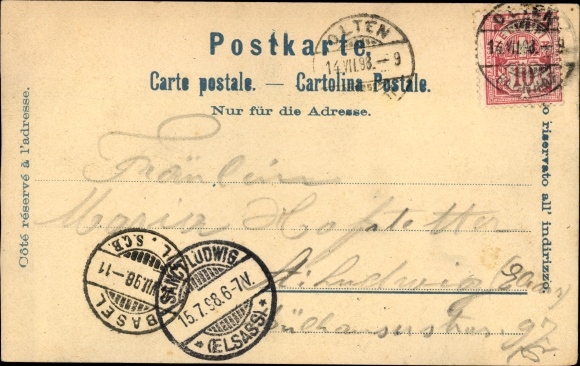 Postkarte.
Carte postale. — Cartolina Postale.
Nur für die Adresse.
Côté réservé à l'adresse.
riservato all' indirizzo.
OLTEN
14.VII.98.–9
OLTEN
14.VII.98.–9
10
Fräulein
Maria Hofstetter
St. Ludwig
BASEL
VII.98.–11
L. S.C.B.
SANCT LUDWIG
15.7.98.6-7V.
*(ELSASS)*